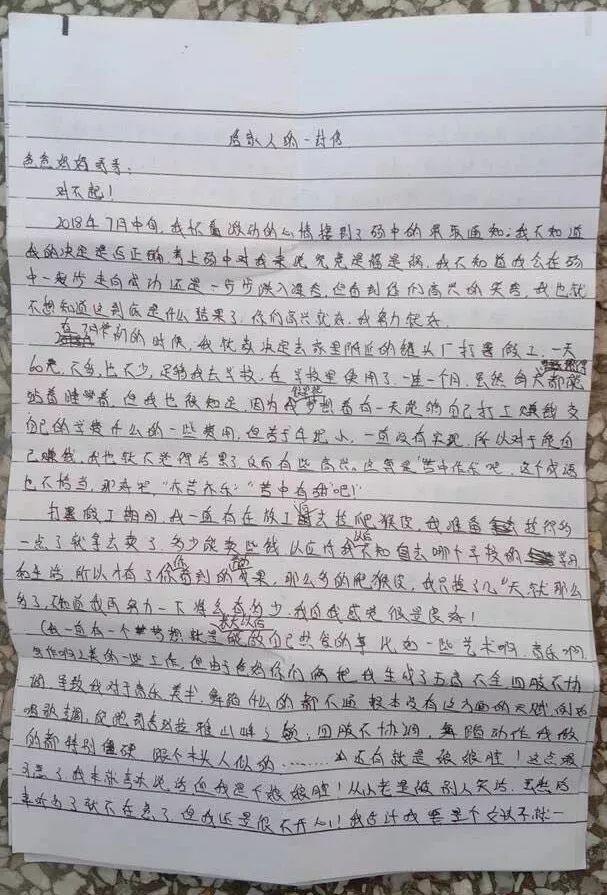 给家人的一封信
爸爸妈妈哥哥:
对不起!
2018年7月中旬,我怀着激动的心情接到了弱中的录取通知;我不知道
我的决定是否正确,考上弱中对我来说究竟是福是祸,我不知道我会在弱
中一步步走向成功还是一步步跌入深壑,但看到你们高兴的笑容,我也就
不想知道这到底是什么结果了,你们高兴就好,我努力就好。
在 的时候,我就决定去家里附近的罐头厂打暑假工,一天
60元,不多,也不少,足够我去学校,在学校里使用了,一连一个月,虽然每天都
站着睡着,但我也很知足,因为我梦想着有一天能够自己打工赚钱交
自己的学费什么的一些费用,但苦于年纪小,一直没有实现,所以对于能自
己赚钱,我也就不觉得有累了反而有些高兴。这算是"苦中作乐吧,这个成语
也不恰当,那就是"亦苦亦乐""苦中有甜"吧!
打暑假工期间,我一直有在放工后去捡爬猴皮,我准备 捡得多
一点了就拿去卖了,多少能卖些钱,以应付我以后不知自去哪个学校的 学习
和生活,所以才有了你看到的成果,那么多的爬猴皮,我只捡了几天,就那么
多了,不知道我再努力一下将会有多少,我自我感觉很是良好!
(我一直有一个梦想就是长大以后能做自己热爱的事,比如一些艺术啊,音乐啊,
写作啊上类的一些工作,但由于爸妈你们俩把我生成了五音不全,四肢不协
调,导致我对于音乐,美术,舞蹈什么的都不通,根本没有这方面的天赋,例如
唱歌走调,
四肢不协调,舞蹈动作我做
的都特别僵硬,跟个木头人似的,……还有就是娘娘腔!这点最
可恶了,我本来 说话但我是个娘娘腔!从小老是被别人笑话,虽然后
来听多了就不在意了,但我还是很不开心!我估计我要是个女孩子就一